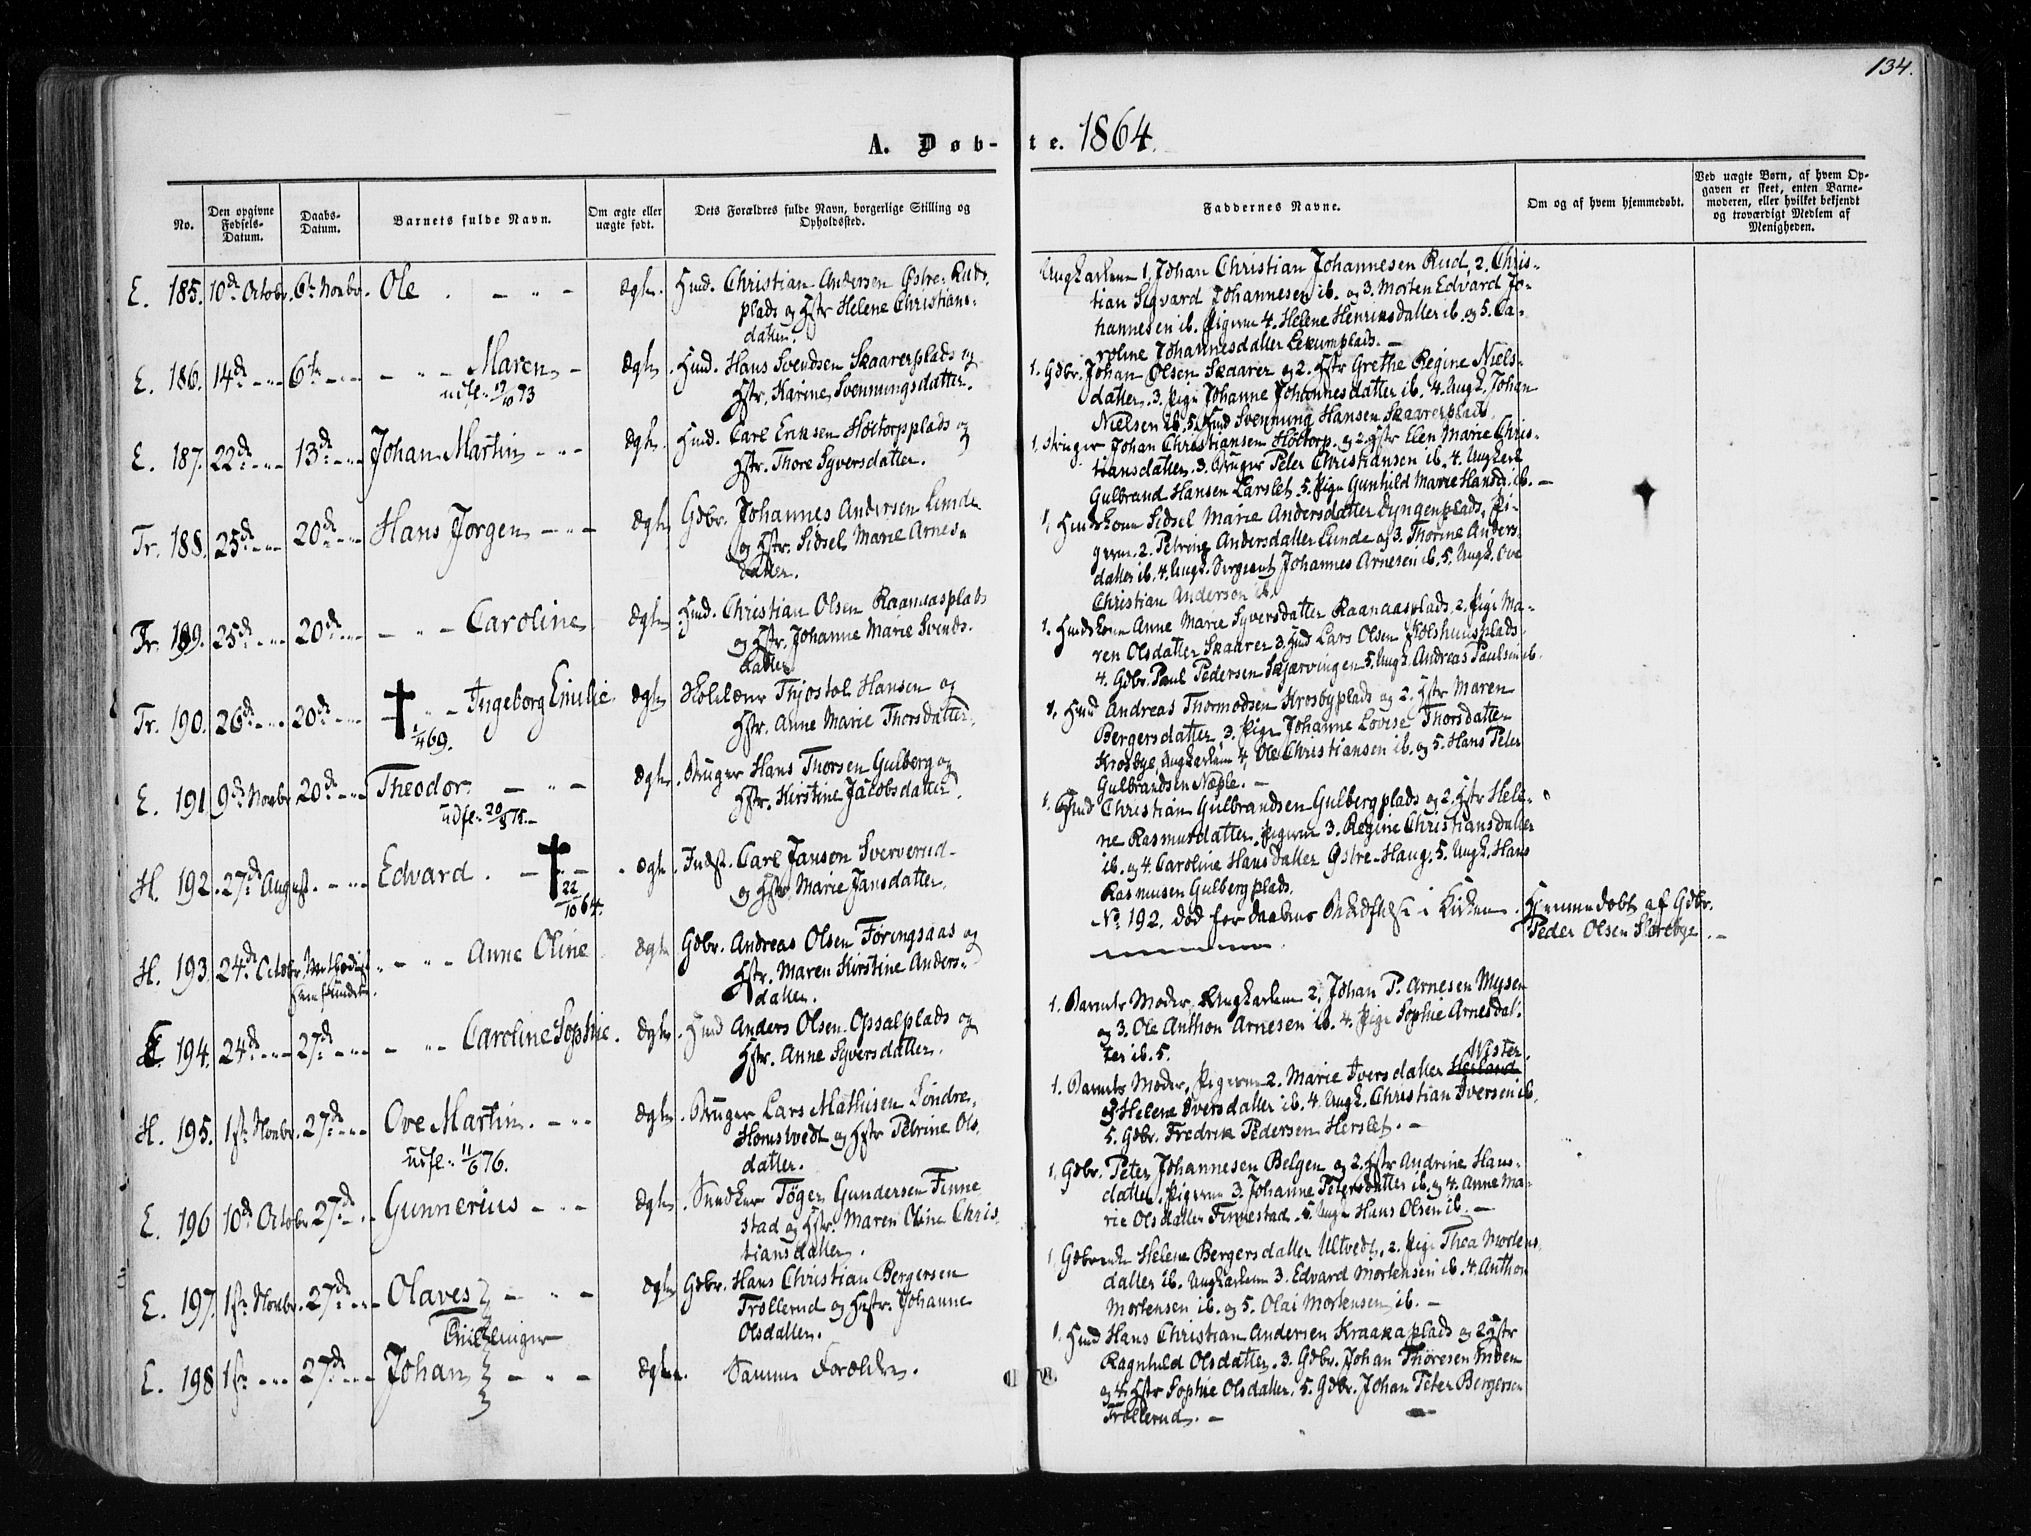 134.
A. Døb-te. 1864.
No.
Den opgivne Fødsels-Datum.
Daabs-Datum.
Barnets fulde Navn.
Om ægte eller uægte født.
Dets Forældres fulde Navn, borgerlige Stilling og Opholdssted.
Faddernes Navne.
Om og af hvem hjemmedøbt.
Ved uægte Børn, af hvem Op-
gaven er skeet, enten Barne-
moderen, eller hvilket bekjendt
og troværdigt Medlem af
Menigheden.
E. 185. 10de Octobr. 6te Novbr. Ole Ægte. Hmd. Christian Andersen Østre-Ruds-
plads og Hstr Helene Christians-
datter.
Ungkarlene 1. Johan Christian Johannesen Rud, 2. Chris-
tian Sigvard Johannesen ib. og 3. Morten Edvard Jo-
hannesen ib. Pigerne 4. Helene Henriksdatter ib. og 5. Ca-
roline Johannesdatter Lekumplads.
E. 186. 14de 6te Maren Ægte. Hmd. Hans Svendsen Skaarerplads og
udfl. 12/10 73 Hstr. Karine Svenningsdatter.
1. Gdbr. Johan Olsen Skaarer og 2. Hstr Grethe Regine Niels-
datter. 3. Pige Johanne Johannesdatter ib. 4. Ungk. Johan
Nielsen ib. 5. Hmd Svenning Hansen Skaarerplads.
E. 187. 22de 13de Johan Martin Ægte. Hmd. Carl Eriksen Høitorpplads og
Hstr. Thore Syversdatter.
1. Bruger Johan Christiansen Høitorp. og 2. Hstr Elen Marie Chris-
tiansdatter. 3. Bruger Peter Christiansen ib. 4. Ungkarl
Gulbrand Hansen Larslet. 5. Pige Gunhild Marie Hansd. ib.
Tr. 188. 25de 20de Hans Jørgen Ægte Gdbr. Johannes Andersen Lunde
og Hstr. Sidsel Marie Arnes-
datter.
1. Huusekone Sidsel Marie Andersdatter Dyngenplads, Pi-
gerne 2. Petrine Andersdatter Lunde og 3. Thorine Anders-
datter ib. 4. Ungk. Sergeant Johannes Arnesen ib. 5. Ungk. Ove
Christian Andersen ib.
Tr. 189. 25de 20de Caroline Ægte Hmd. Christian Olsen Raanaasplads
og Hstr. Johanne Marie Svends-
datter
1. Huuskone Anne Marie Syversdatter Raanaasplads, 2. Pige Ma-
ren Olsdatter Skaarer 3. Hmd Lars Olsen Folshuusplads
4. Gdbr. Paul Pedersen Skjærvingen 5. Ungk. Andreas Paulsen ib.
Tr. 190. 26de 20de Ingeborg Emilie Ægte Skolelærer Thjostol Hansen og
1/4 69. Hstr. Anne Marie Thorsdatter.
1. Hmd Andreas Thormodsen Krosbyplads og 2. Hstr Maren
Bergersdatter, 3. Pige Johanne Lovise Thorsdatter
Krosbye, Ungkarlene 4. Ole Christiansen ib. og 5. Hans Peter
Gulbrandsen Næple.
E. 191 9de Novbr. 20de Theodor Ægte. Bruger Hans Thorsen Gulberg og
udfl. Hstr. Kirstine Jacobsdatter.
1. Hmd Christian Gulbrandsen Gulbergplads og 2. Hstr Hele-
ne Rasmusdatter. Pigerne 3. Regine Christiansdatter
ib. og 4. Caroline Hansdatter Østre-Haug, 5. Ungk. Hans
Rasmusen Gulbergplads.
H. 192. 27de August. Edvard. Ægte. Indst. Carl Janson Sververud
22/10 64. og Hstr Marie Jansdatter.
No 192. død før Daabens Stadfæstelse i Kirken. Hjemmedøbt af Gdbr.
Peder Olsen
H. 193. 24de Octobr. Methodist
Samfundet. Anne Oline Ægte Gdbr. Andreas OlsenFøringsaas og
Hstr. Maren Kirstine Anders-
datter.
E. 194. 24de 27de Caroline Sophie. Ægte. Hmd Anders Olsen Opsalplads og
Hstr. Anne Syversdatter.
1. Barnets Moder, Ungkarlene 2. Johan P. Arnesen Mysen
og 3. Ole Anthon Arnesen ib. 4. Pige Sophie Arnesdat-
ter ib. 5.
H. 195. 1ste Novbr. 27de Ove Martin. Ægte. Bruger Lars Mathisen Søndre
udfl. 11/6 76. Homstvedt og Hstr Petrine Ols-
datter.
1. Barnets Moder, Pigerne 2. Marie Iversdatter Herland Wister.
3. Helene Iversdatter ib. 4. Ungk. Christian Iversen ib.
5. Gdbr. Fredrik Pedersen Herslet.
E. 196 10de Octobr 27de Gunnerius Ægte. Snedker Tøger Gundersen Finne
stad og Hstr. Maren Oline Chris-
tiansdatter.
1. Gdbr. Peter Johannesen Belgen og 2. Hstr Andrine Hans-
datter. Pigerne 3. Johanne Petersdatter ib. og 4. Anne Ma-
rie Olsdatter Finnestad. 5. Ungk Hans Olsen ib.
E. 197. 1ste Novbr. 27de Olaves Ægte Gdbr. Hans Christian Bergersen
Tvillinger Trollerud og Hstr. Johanne
Olsdatter.
1. Gdbrenke Helene Bergersdatter Ultvedt, 2. Pige Thea Mortens-
datter ib. Ungkarlene 3. Edvard Mortensen ib. 4. Anthon
Mortensen ib. og 5. Olai Mortensen ib.
E. 198 1ste 27de Johan Ægte. Samme Forældre.
1. Hmd Hans Christian Andersen Kraakaplads og 2 Hstr
Ragnhild Olsdatter. 3. Gdbr. Johan Thoresen Moen
og 4. Hstr Sophie Olsdatter. 5. Gdbr. Johan Peter Bergersen
Trollerud.